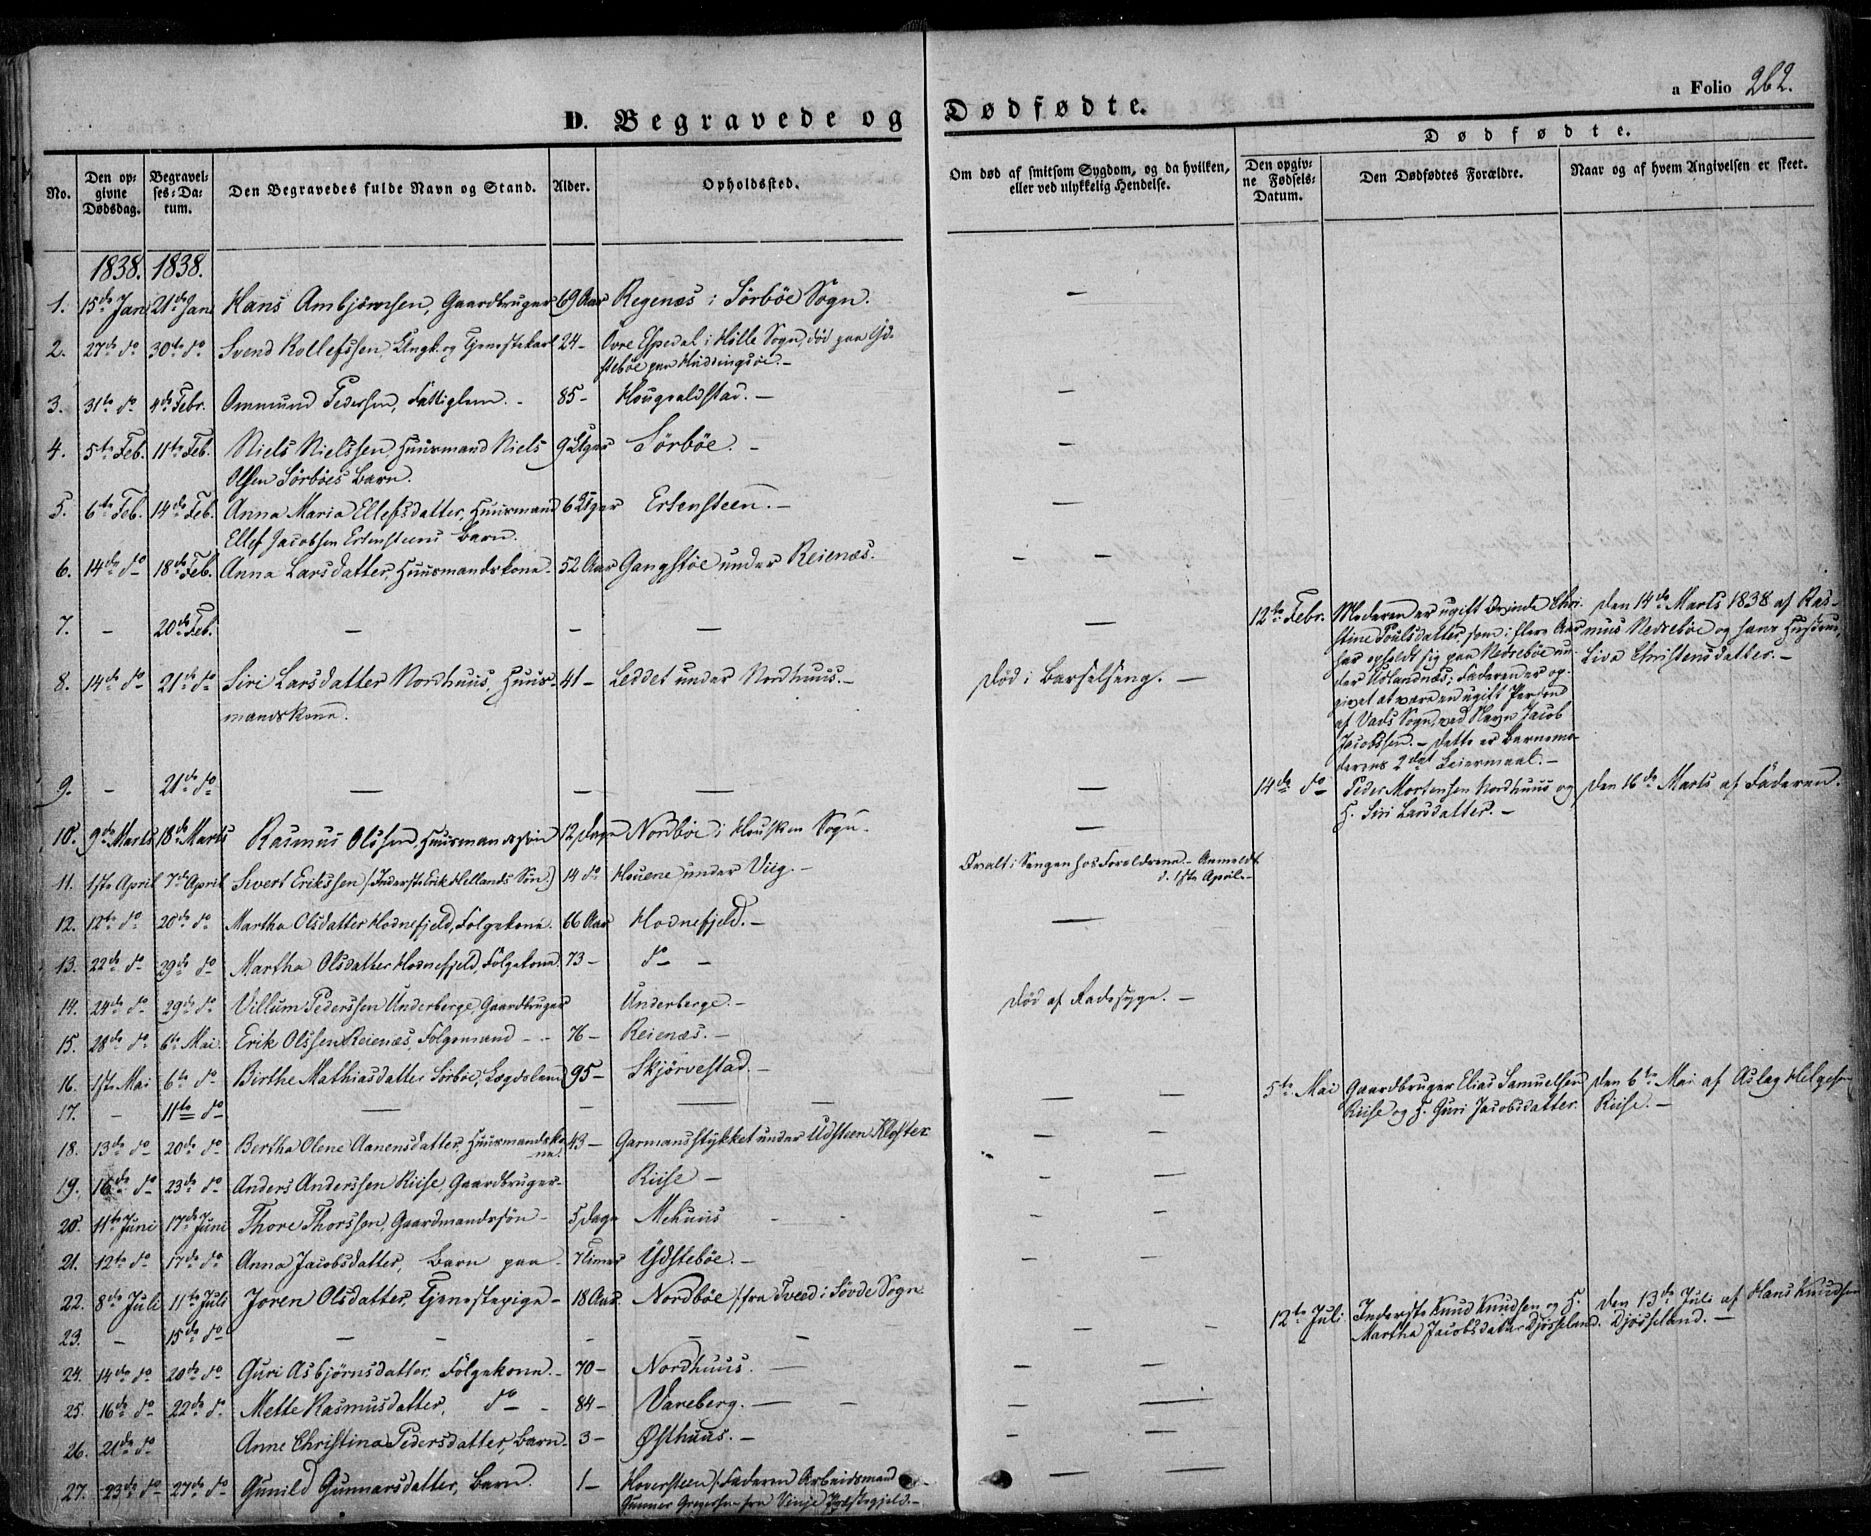 a Folio 262.
D. Begravede og Dødfødte.
No.
Den opgivne Dødsdag.
Begravelses-Datum.
Den Begravedes fulde Navn og Stand.
Alder.
Opholdssted.
Om død af smitsom Sygdom, og da hvilken,
eller ved ulykkelig Hendelse.
Dødfødte.
Den opgivne Fødsels-Datum.
Den Dødfødtes Forældre.
Naar og af hvem Angivelsen er skeet.
1838. 1838.
1. 15de Jan 21de Jan Hans Ambjørnsen, Gaardbruger 69 Aar Regenæs i Sørbøe Sogn. —
2. 27de do 30te do Svend Rollefssen, Ungk. og Tjenestekarl 24 - Øvre Espedal i Hølle Sogn, død paa Yd-
stebøe paa
3. 31te do 4de Febr. Ommund Pedersen, Fattiglem. - 85 - Hougvaldstad. — —
4. 5te Feb. 11te Feb. Niels Nielssen, Huusmand Niels 9 Uger Sørbøe. - —
Olsen Sørbøes Barn.
5. 6te Feb. 14de Feb. Anna Maria Ellefsdatter, Huusmand 6 Uger Ertensteen. — —
Ellef Jacobsen Ertensteens Barn.
6. 14de do 18de Feb. Anna Larsdatter, Huusmandskone - 52 Aar Gangstøe under Reienæs. — —
7. - 20de Feb. — — — — 12te Febr. Moderen er ugift Qvinde Chri- Den 14de Marts 1838 af Ras-
stine Poulsdatter, som i flere Aar mus Nedrebøe og hans Hustrue,
har opholdt sig paa Nedrebøe un- Liva Christensdatter. —
der Fader er op-
givet at være en ugift Person
af Vads Sogn, ved Navn Jacob
Jacobssen. — Dette er Barnemo-
derens 2det Leiermaal. —
8. 14de do 21de do Siri Larsdatter Nordhuus, Huus- 41 - Leddet under Nordhuus. — Død i Barselseng. —
mandskone.
9. - 21de do — — — — 14de do Peder Mortensen Nordhuus og Den 16de Marts af Faderen.
H. Siri Larsdatter. —
10. 9de Marts 18de Marts Rasmus Olssen, Huusmandssøn 12 Dage Nordbøe i Housken Sogn. —
11. 1ste April 7de April Sivert Erikssen (Inderste Erik Hellands Søn) 14 do Houene under Viig. — Qvalt i Sengen hos Forældrene. — Anmeldt
d. 1ste April. —
12. 12te do 20de do Martha Olsdatter Hodnefjeld, Følgekone. 66 Aar Hodnefjeld. — —
13. 22de do 29de do Martha Olsdatter Hodnefjeld, Følgekone 73 - do -
14. 24de do 29de do Villum Pederssen Underberge, Gaardbruger Underberge. — Død af Radesyge. —
15. 28de do 6te Mai. Erik Olssen Reienæs, Følgemand - - 76 - Reienæs. —
16. 1ste Mai 6te do Birthe Mathiasdatter Sørbøe, Lægdslem 95 - Skjørvestad. —
17. - 11te do — — — — — 5te Mai Gaardbruger Elias Samuelsen Den 6te Mai af Aslag Helgesen
Riise og H. Guri Jacobsdatter. Riise. —
18. 13de do 20de do Bertha Olene Aanensdatter, Huusmandsko- 43 - Garmansstykket under Udsteen Kloster — —
ne.
19. 16de do 23de do Anders Anderssen Riise, Gaardbruger - Riise — — —
20. 11te Juni 17de Juni Thore Thorssen, Gaardmandssøn - 5 Dage Mehuus - - — —
21. 12te do 17de do Anna Jacobsdatter, Barn paa - 7 Timer Ydstebøe. — — —
22. 8de Juli 11te Juli Joren Olsdatter, Tjenestepige - 18 Aar Nordbøe /: fra Tveed i Søvde Sogn
23. - 15de do — — - - - — - 12te Juli Inderste Knud Knudsen og H. Den 13de Juli af Hans Knudsen
Martha Jacobsdatter Djøsseland. Djøsseland. —
24. 14de do 20de do Guri Asbjørnsdatter, Følgekone. - 70 - Nordhuus. — — —
25. 16de do 22de do Mette Rasmusdatter, do - 84 - Vareberg. — — —
26. 21de do Anne Christina Pedersdatter, Barn - 3 - Østhuus. — — —
27. 23de do 27de do Gunild Gunnarsdatter, Barn. 1 - Hoversteen /: Faderen Arbeidsmand — —
Gunner Gregersen fra Vinje Præstegjeld. —